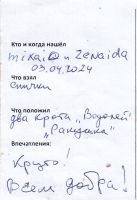 Кто и когда нашёл
mixail и Zenaida
03.04.2024
Что взял
спички
Что положил
два крота "Водолей"
"Ракушка"
Впечатления:
Круто!
Всем добра!